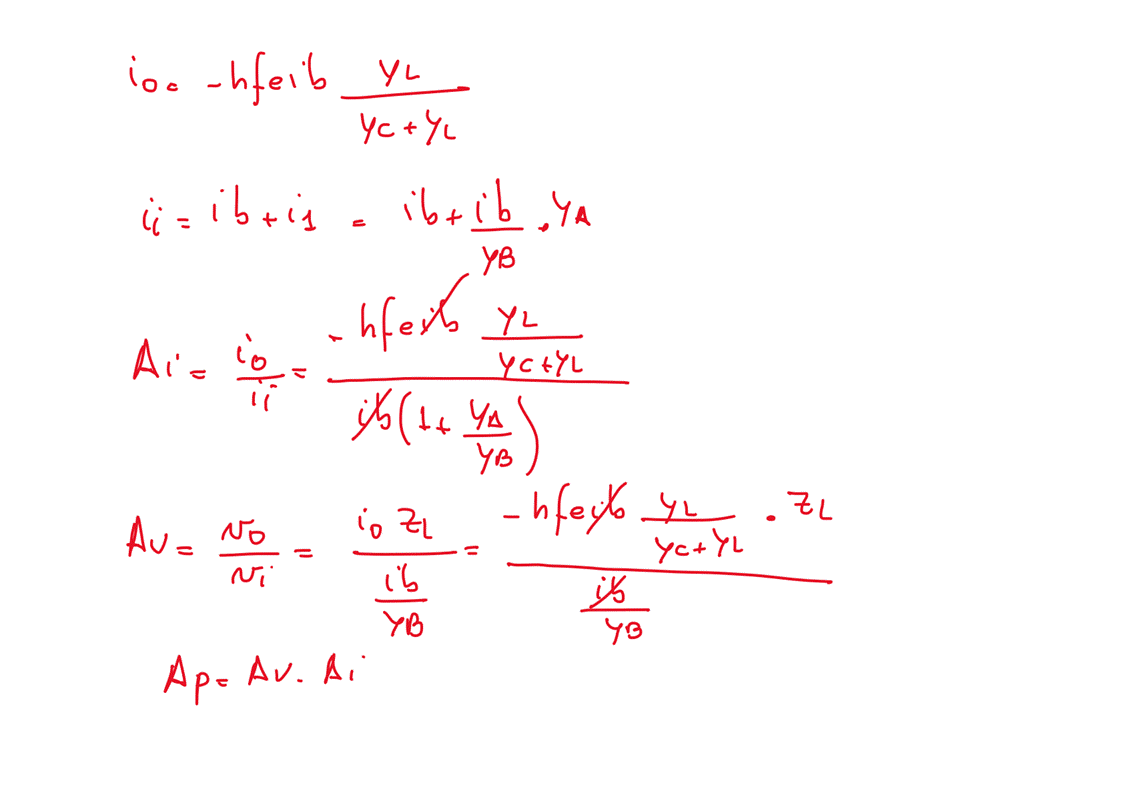 io = -hfe ib yL / (yC + yL)
ii = ib + i1 = ib + ib / yB . yA
Ai = io / ii = -hfe ib yL / (yC + yL) / ib (1 + yA / yB)
Av = vo / vi = io ZL / (ib / yB) = -hfe ib yL / (yC + yL) . ZL / (ib / yB)
Ap = Av . Ai